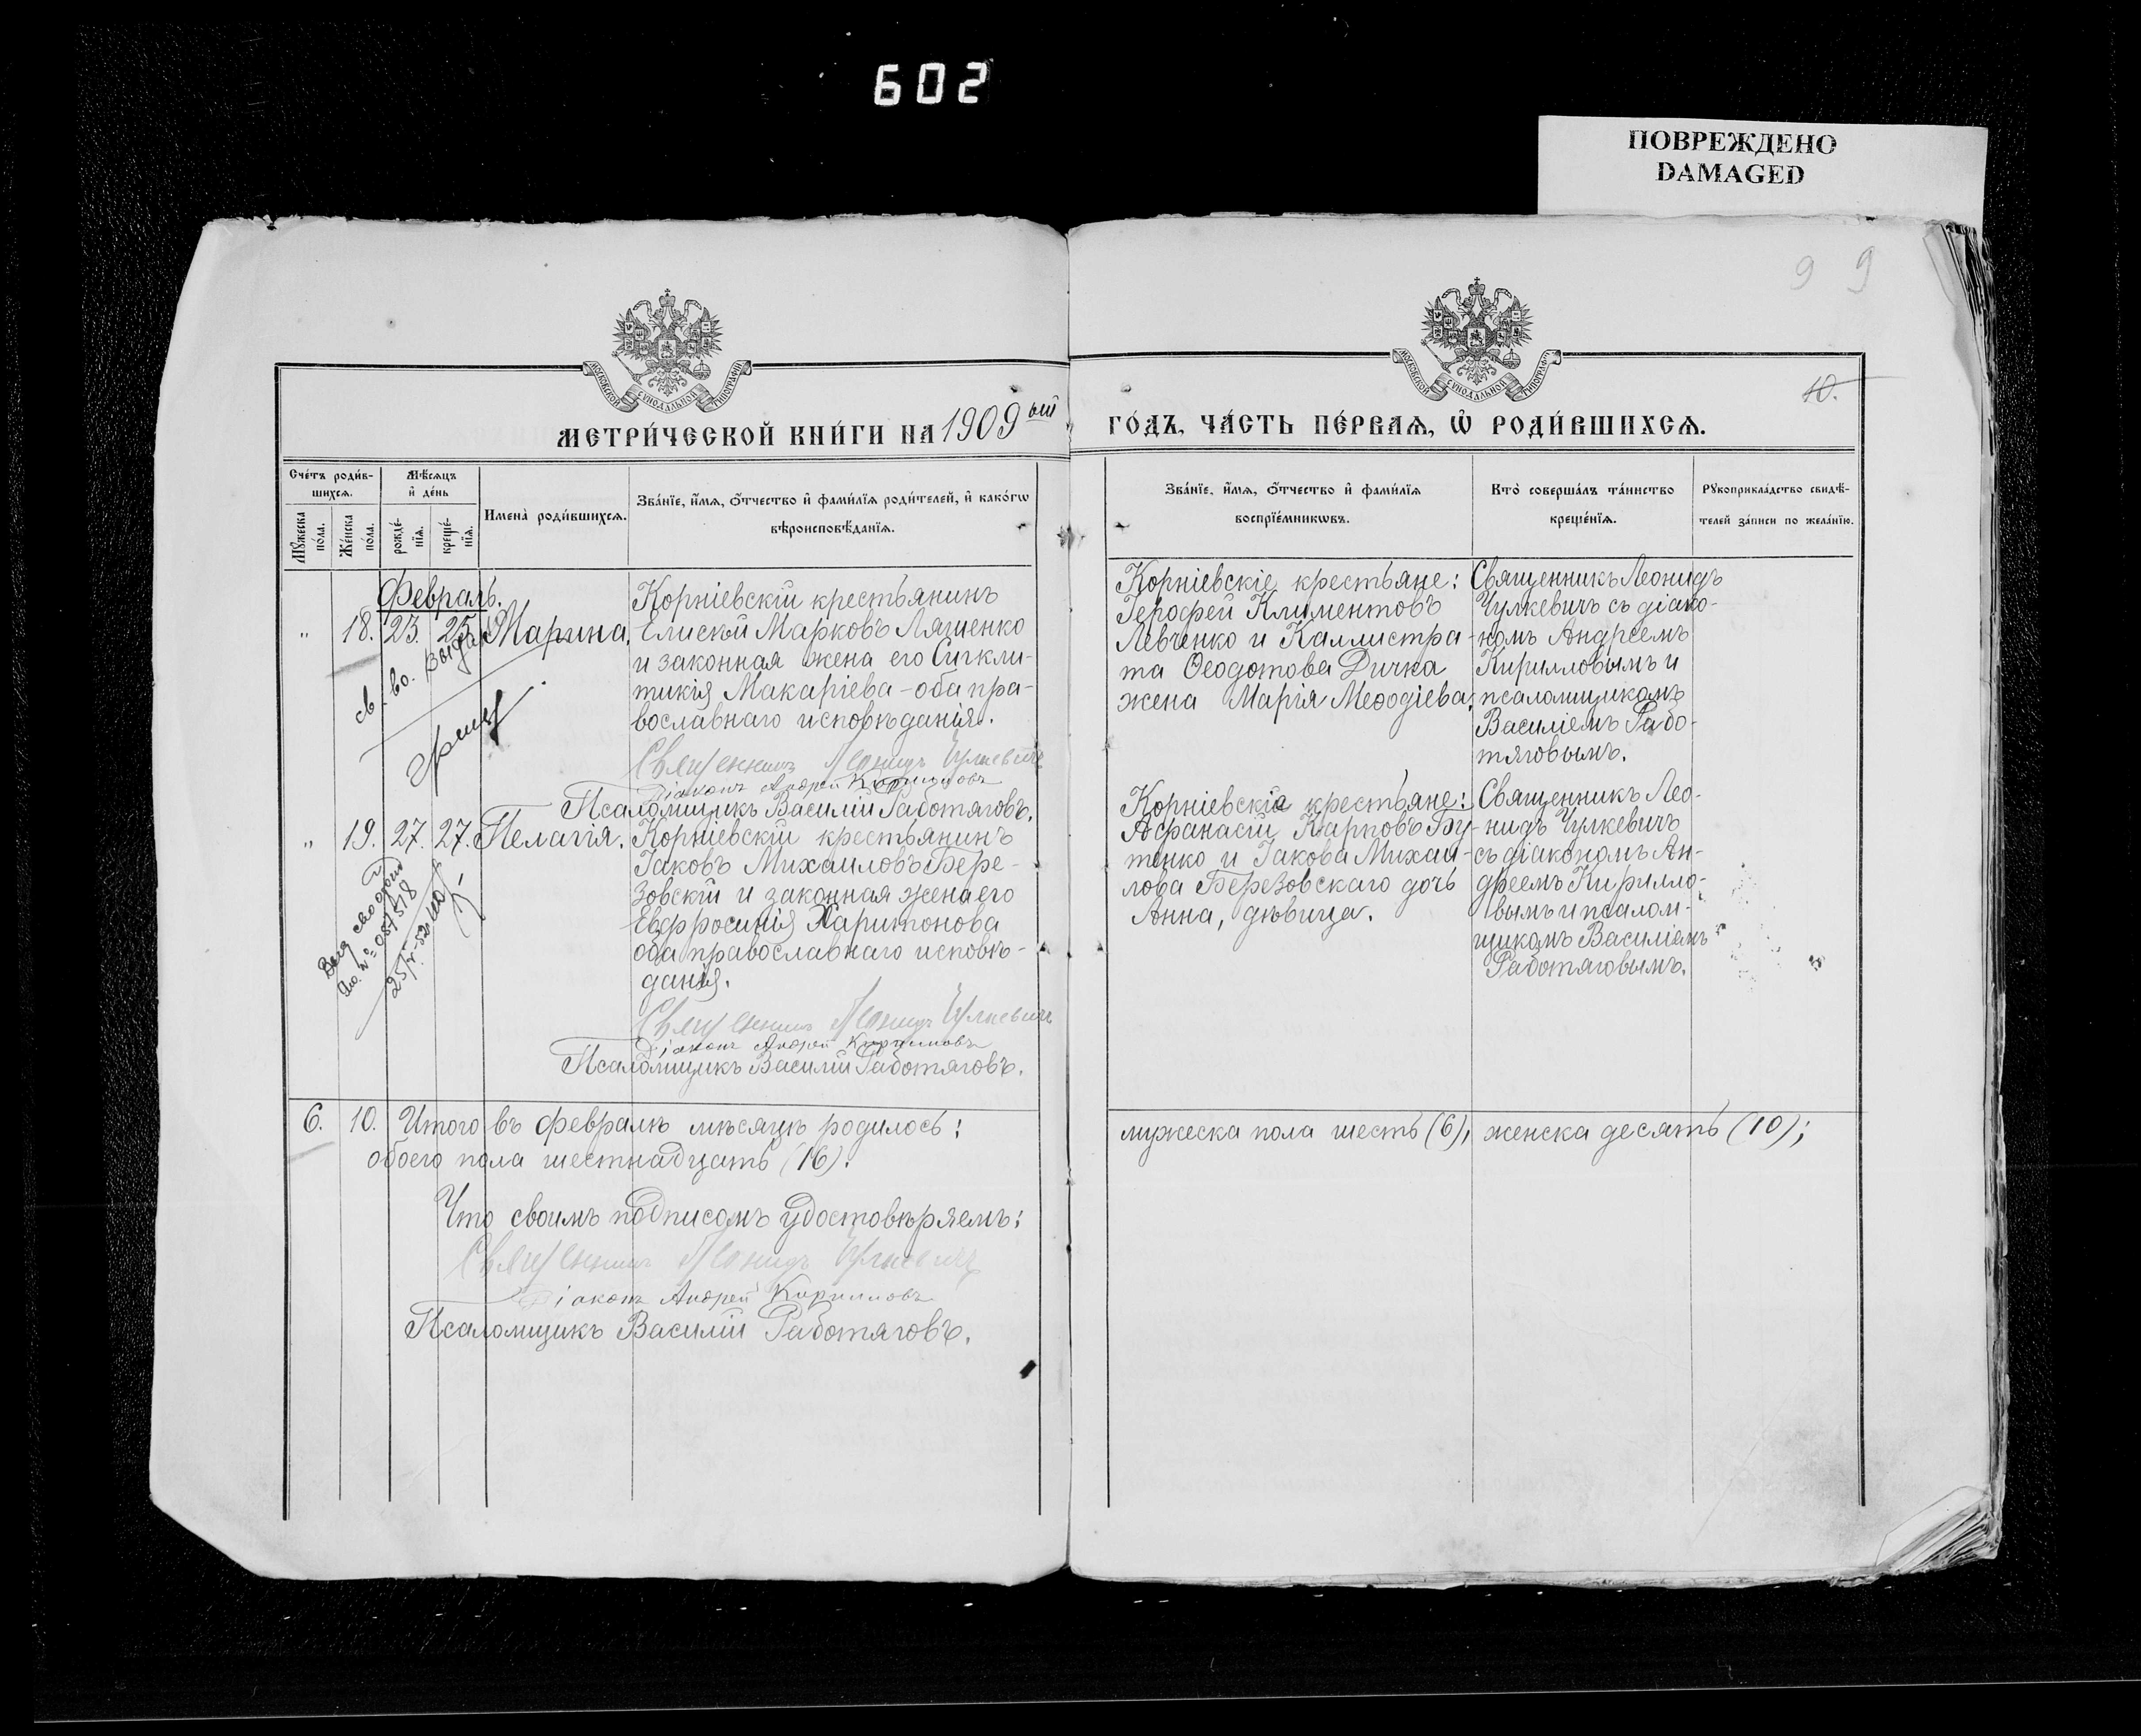 602
ПОВРЕЖДЕНО
DAMAGED
9 9
10.
МОСКОВСКОЙ СѴНОДАЛЬНОЙ ТИПОГРАФІИ
МОСКОВСКОЙ СѴНОДАЛЬНОЙ ТИПОГРАФІИ
МЕТРИ́ЧЕСКОЙ КНИ́ГИ НА 1909ый
ГО́ДЪ, ЧА́СТЬ ПЕ́РВАѦ, Ѡ҆ РОДИ́ВШИХСѦ.
Сче́тъ роди́в-
шихсѧ.
Мꙋ́жеска
по́ла.
Же́нска
по́ла.
Мѣ́сѧцъ
и҆ де́нь
рожде́-
нїѧ.
креще́-
нїѧ.
Имена̀ роди́вшихсѧ.
Зва́нїе, и҆́мѧ, ѻ҆́тчество и҆ фами́лїѧ роди́телей, и҆ како́гѡ
вѣроисповѣ́данїѧ.
Зва́нїе, и҆́мѧ, ѻ҆́тчество и҆ фами́лїѧ
воспрїе́мникѡвъ.
Кто̀ соверша́лъ та́инство
креще́нїѧ.
Рꙋкоприкла́дство свидѣ́-
телей за́писи по жела́нїю.
Февраль.
" 18. 23. 25. Марина.
св-во. выдано
Корніевскій крестьянинъ
Елисѣй Марковъ Ляшенко
и законная жена его Сигкли-
тикія Макаріева - оба пра-
вославнаго исповѣданія.
Священникъ Леонидъ Чулкевичъ
Діаконъ Андрей Кирилловъ
Псаломщикъ Василій Работяговъ.
Корніевскіе крестьяне:
Іерофей Климентовъ
Левченко и Каллистра-
та Ѳеодотова Дичка
жена Марія Меѳодіева.
Священникъ Леонидъ
Чулкевичъ съ діако-
номъ Андреемъ
Кирилловымъ и
псаломщикомъ
Василіемъ Рабо-
тяговымъ.
" 19. 27. 27. Пелагія.
Корніевскій крестьянинъ
Іаковъ Михаиловъ Бере-
зовскій и законная жена его
Евфросинія Харитонова
оба православнаго исповѣ-
данія.
Священникъ Леонидъ Чулкевичъ
Діаконъ Андрей Кирилловъ
Псаломщикъ Василій Работяговъ.
Корніевскіе крестьяне:
Аѳанасій Карповъ Бу-
тенко и Іакова Михаи-
лова Березовскаго дочь
Анна, дѣвица.
Священникъ Лео-
нидъ Чулкевичъ
съ діакономъ Ан-
дреемъ Кирилло-
вымъ и псалом-
щикомъ Василіемъ
Работяговымъ.
6. 10. Итого въ февралѣ мѣсяцѣ родилось:
мужеска пола шесть (6), женска десять (10);
обоего пола шестнадцать (16).
Что своимъ подписомъ удостовѣряемъ:
Священникъ Леонидъ Чулкевичъ
Діаконъ Андрей Кирилловъ
Псаломщикъ Василій Работяговъ.